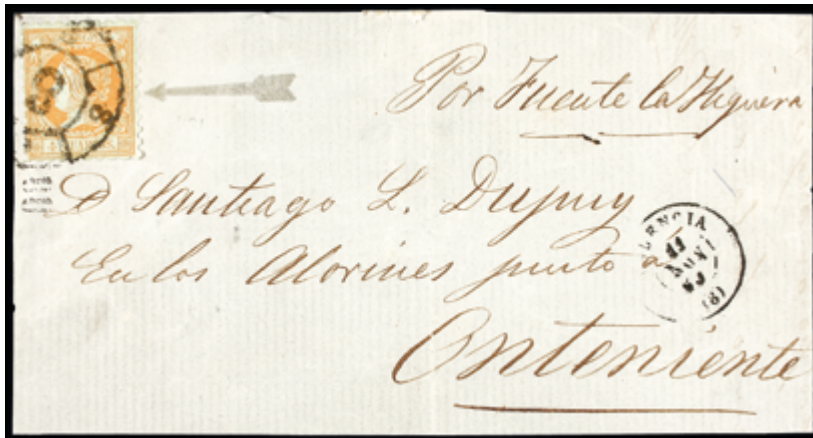 Por Fuente la Higuera
D Santiago L. Dupuy
En los Alorines junto á
Onteniente
LENCIA
11
(8)